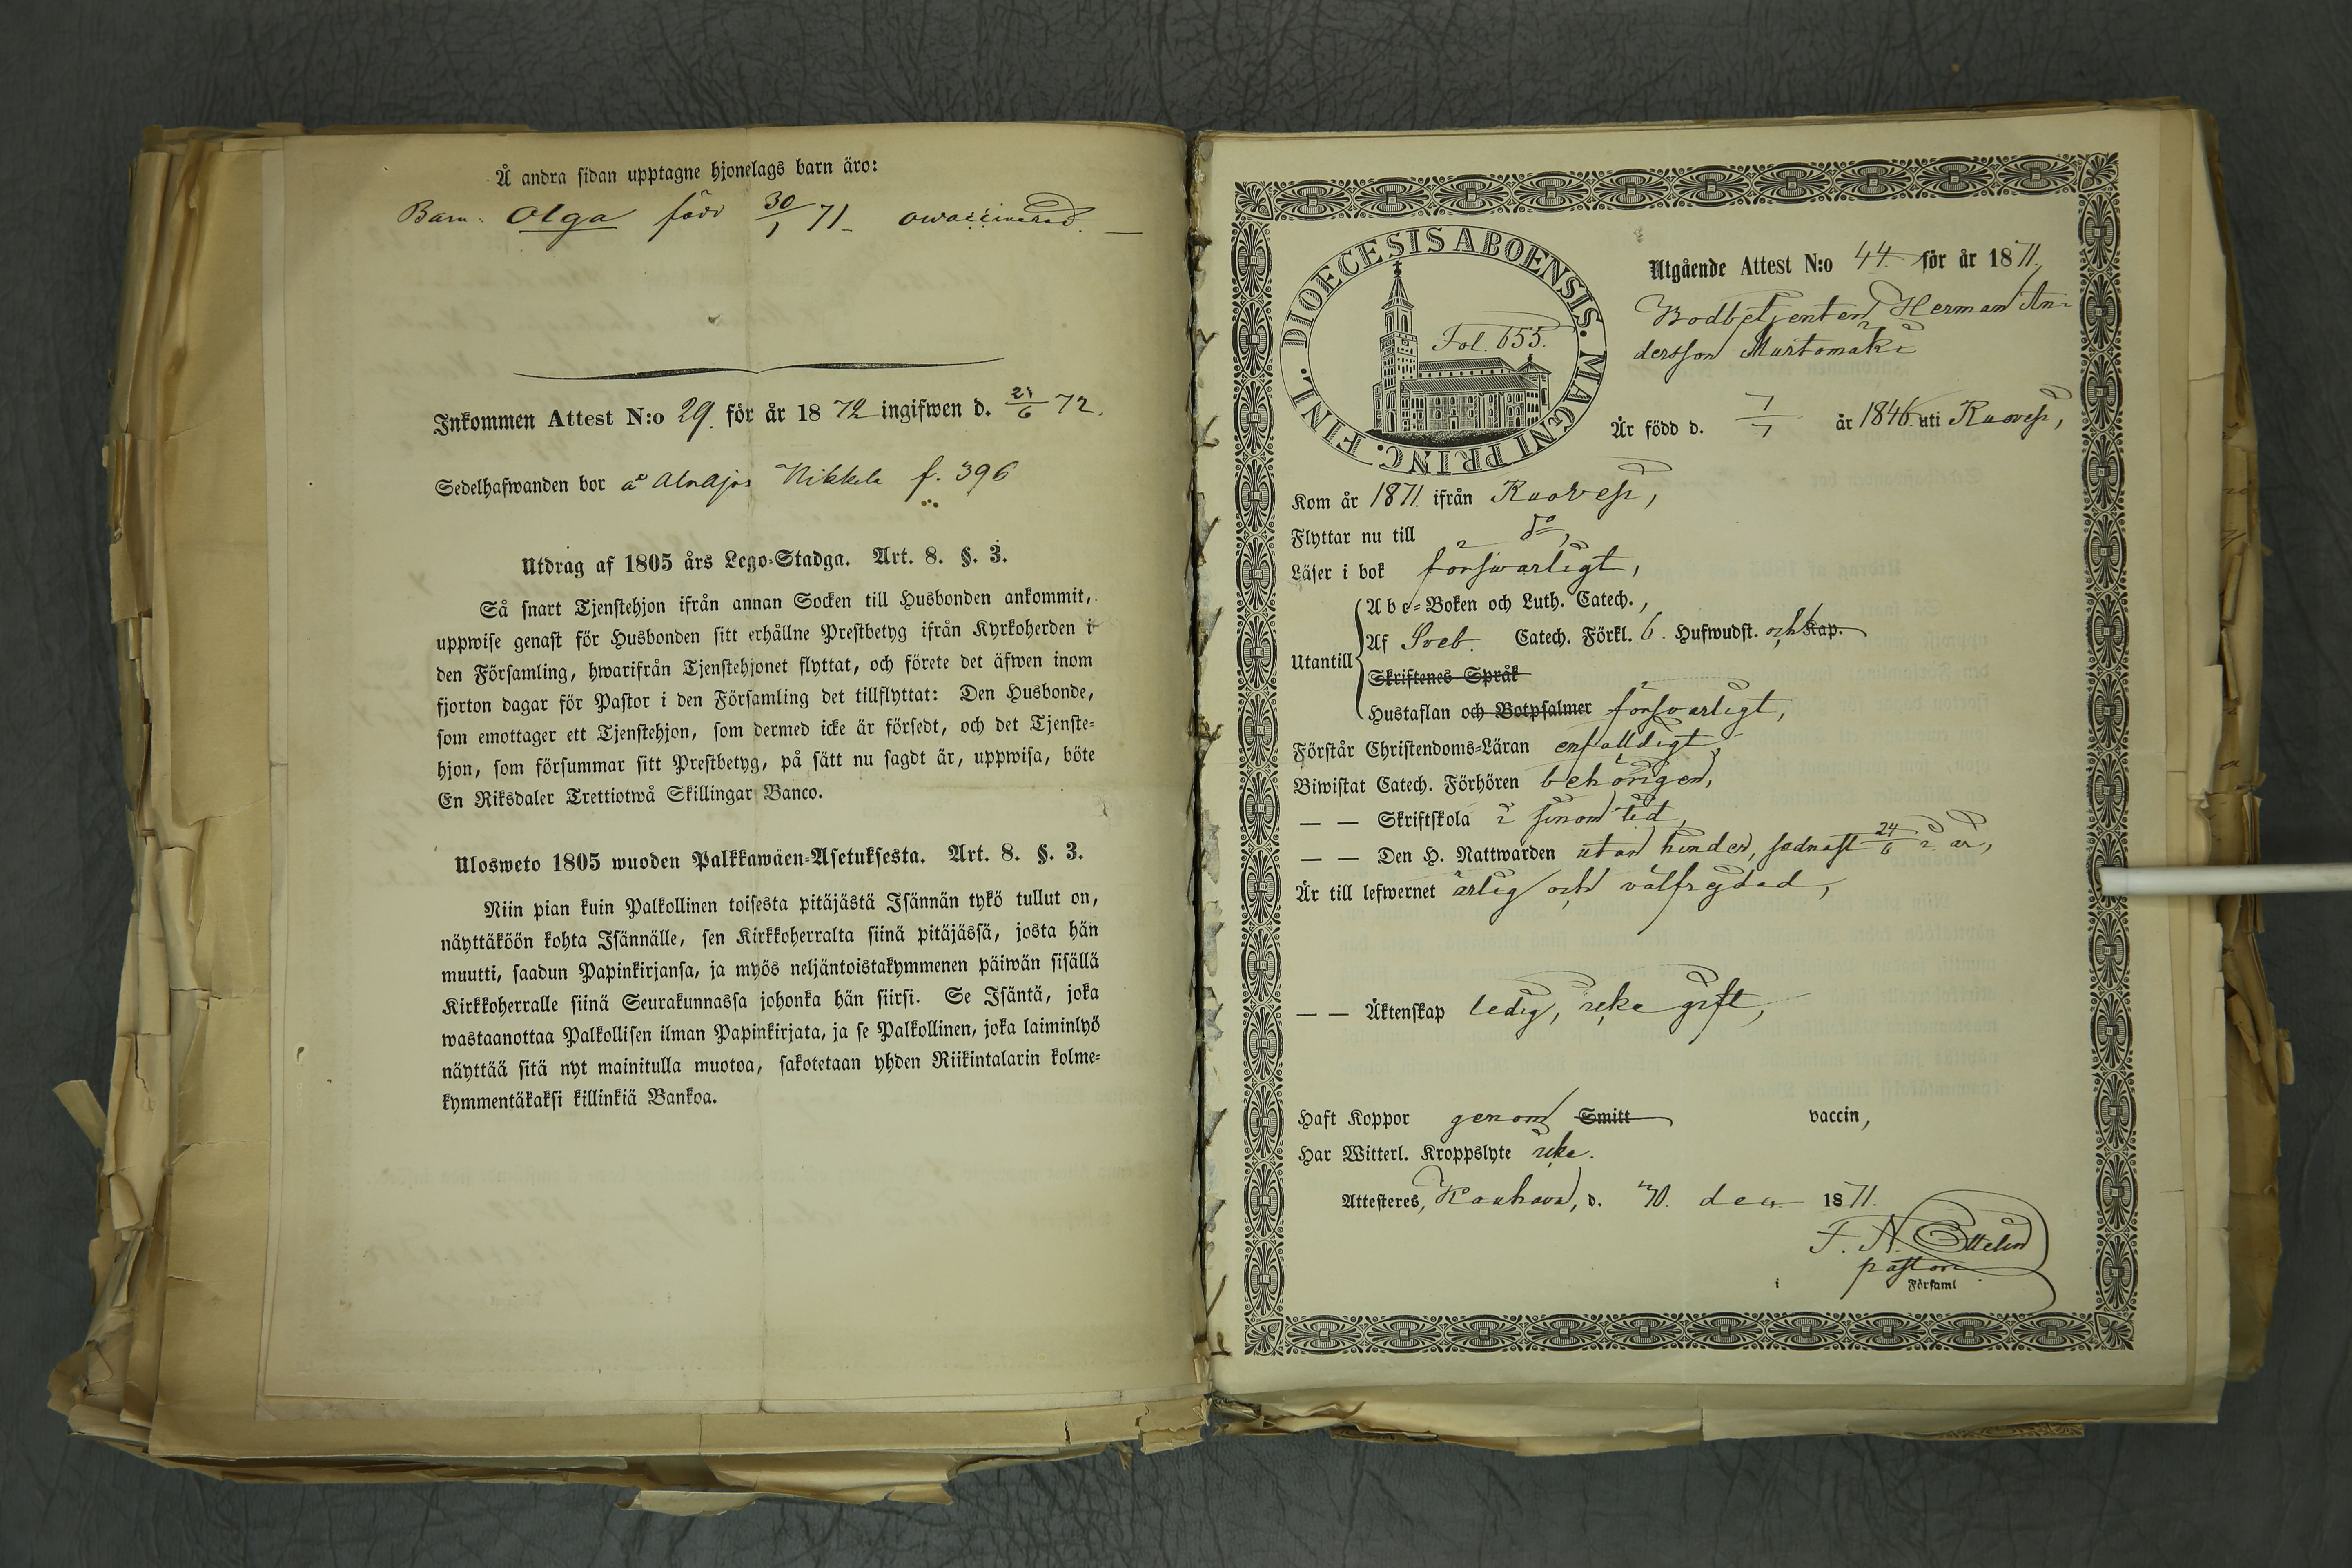 Å andra sidan upptagne hjonelags barn äro:
Barn: Olga född 30/1 71_ owaccinerad. —
Inkommen Attest N:o 29. för år 1872 ingifwen d. /6 72.
Sedelhafwanden bor å Nikkila f. 396
Utdrag af 1805 års Lego-Stadga. Art. 8. §. 3.
Så snart Tjenstehjon ifrån annan Socken till Husbonden ankommit,
uppwise genast för Husbonden sitt erhållne Prestbetyg ifrån Kyrkoherden i
den Församling, hwarifrån Tjenstehjonet flyttat, och förete det äfwen inom
fjorton dagar för Pastor i den Församling det tillflyttat: Den Husbonde,
som emottager ett Tjenstehjon, som dermed icke är försedt, och det Tjenste-
hjon, som försummar sitt Prestbetyg, på sätt nu sagdt är, uppwisa, böte
En Riksdaler Trettiotwå Skillingar Banco.
Ulosweto 1805 wuoden Palkkawäen-Asetuksesta. Art. 8. §. 3.
Niin pian kuin Palkollinen toisesta pitäjästä Isännän tykö tullut on,
näyttäköön kohta Isännälle, sen Kirkkoherralta siinä pitäjässä, josta hän
muutti, saadun Papinkirjansa, ja myös neljäntoistakymmenen päiwän sisällä
Kirkkoherralle siinä Seurakunnassa johonka hän siirsi. Se Isäntä, joka
wastaanottaa Palkollisen ilman Papinkirjata, ja se Palkollinen, joka laiminlyö
näyttää sitä nyt mainitulla muotoa, sakotetaan yhden Riikintalarin kolme-
kymmentäkaksi killinkiä Bankoa.
DIOECESIS ABOENSIS. MAGNI PRINC. FINL.
Fol. 655.
Utgående Attest N:o 44. för år 1871.
Bodbetjenten Herman An-
dersson Murtomäki
Är född d. 7/7 år 1846. uti Ruovesi,
Kom år 1871. ifrån Ruovesi,
Flyttar nu till do,
Läser i bok försvarligt,
Utantill
Abc-Boken och Luth. Catech.,
Af Sveb. Catech. Förkl. 6. Hufwudst. och Kap.
Skriftenes Språk
Hustaflan och Botpsalmer försvarligt,
Förstår Christendoms-Läran enfaldigt,
Biwistat Catech. Förhören behörigen,
— — Skriftskola i sinom tid,
— — Den H. Nattwarden utan hinder, sednast 24/6 i år,
Är till lefwernet ärlig och välfrejdad,
— — Äktenskap ledig, icke gift,
Haft Koppor genom Smitt vaccin,
Har Witterl. Kroppslyte icke.
Attesteres, Kauhava, d. 30. dec. 1871.
F. N. Ottelin
pastor
i Församl